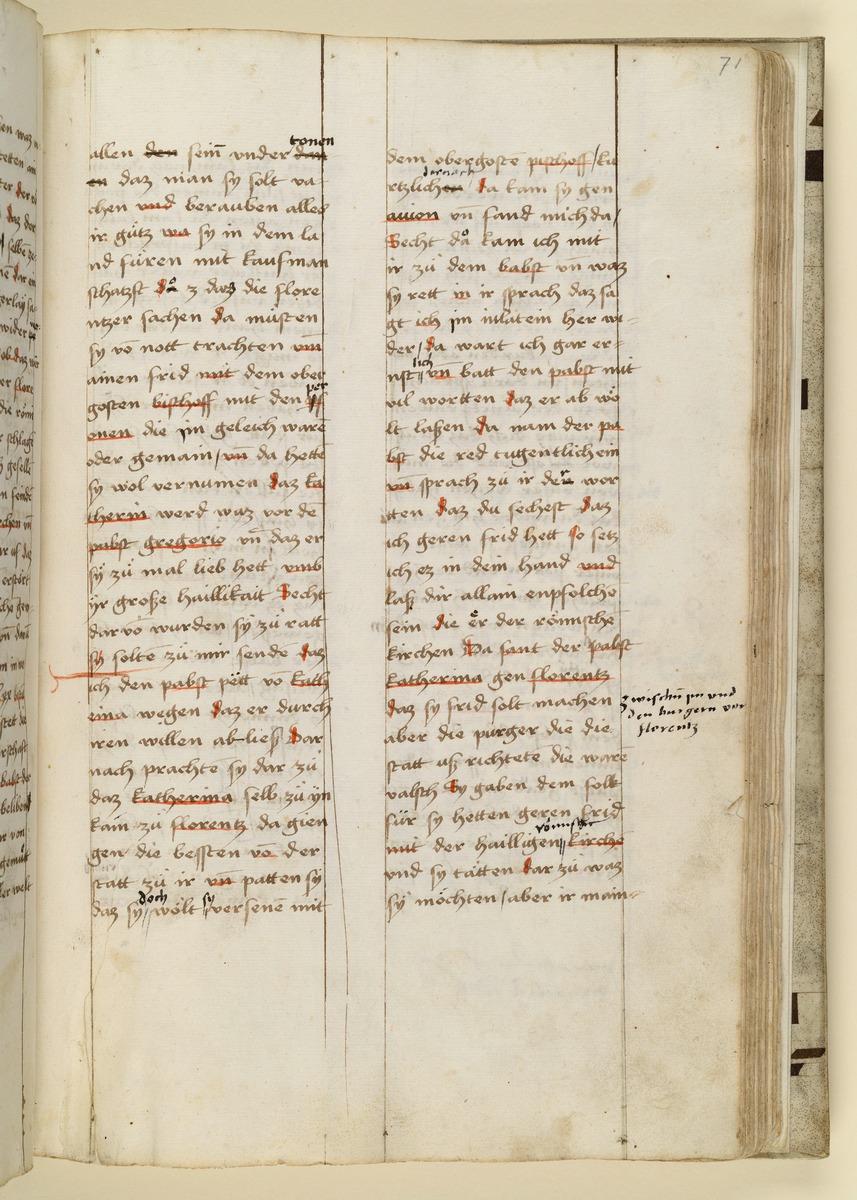 71
allen den sein̄ vnder den tonen
en daz man sy solt va-
chen vnd berauben alles
ir gůtz wa sy in dem la
nd fůren mit kaufman
schatzst do z daz die flore
ntzer sachen da můsten
sy vō nott trachten vm̄
ainen frid mit dem ober
gosten bischoff mit den per
onen die im geleich warē
oder gemain / vn̄ da hettē
sy wol vernumen daz ka
therin werd waz vor dē
pabst gregorio vn̄ daz er
sy zů mal lieb hett vmb
yr große haillikait Secht
darvō wurden sy zů ratt
sy soltē zů mir sende daz
ich den pabst pett vō kath
erina wegen daz er durch
iren willen ab ließ Dar
nach prachte sy dar zů
daz katherina selb zů yn
kam zů florentz da gien
gen die bessten vō der
statt zů ir vn̄ patten sy
daz sy doch wölt sy versenē mit
dem obergostē pischoff / ku
rtzlichen dernach da kam sy gen
auion vn̄ fand mich da /
Secht do kam ich mit
ir zů dem babst vn̄ waz
sy rett in ir sprach daz sa
gt ich im in latein her wi-
der / da wart ich gar er-
nstlich vn̄ batt den pabst mit
vil wortten daz er ab wö
lt laßen da nam der pa
bst die red tugentlich ein
vn̄ sprach zů ir den wor
tten daz du sechest daz
ich geren frid hett so setz
ich ez in dem hand vnd
laß dir allain enpfolche
sein die er der römschē
kirchen Da sant der pabst
katherina gen florentz
daz sy frid solt machen
zwischn̄ jm vnd
den burgern von
florentz
aber die purger die die
statt uß richtetē die ware
valsch Sy gaben dem folk
für sy hetten geren frid
mit der hailligen römischn̄ kirchē
vnd sy tätten dar zů waz
sy möchten / aber ir main-